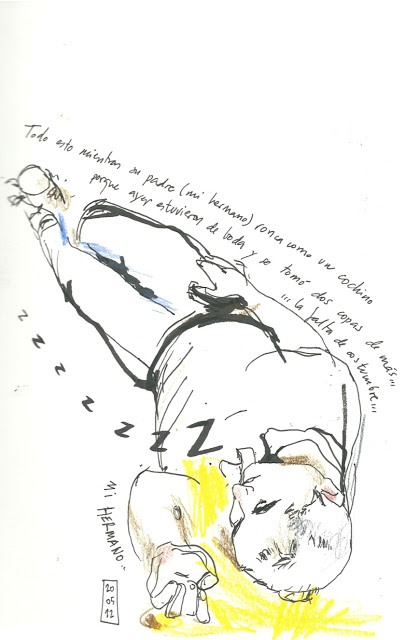 Todo esto mientras su padre (mi hermano) ronca como un cochino
porque ayer estuvieron de boda y se tomó dos copas de más...
... la falta de costumbre...
z z z z z z Z
Mi HERMANO..
20
05
12